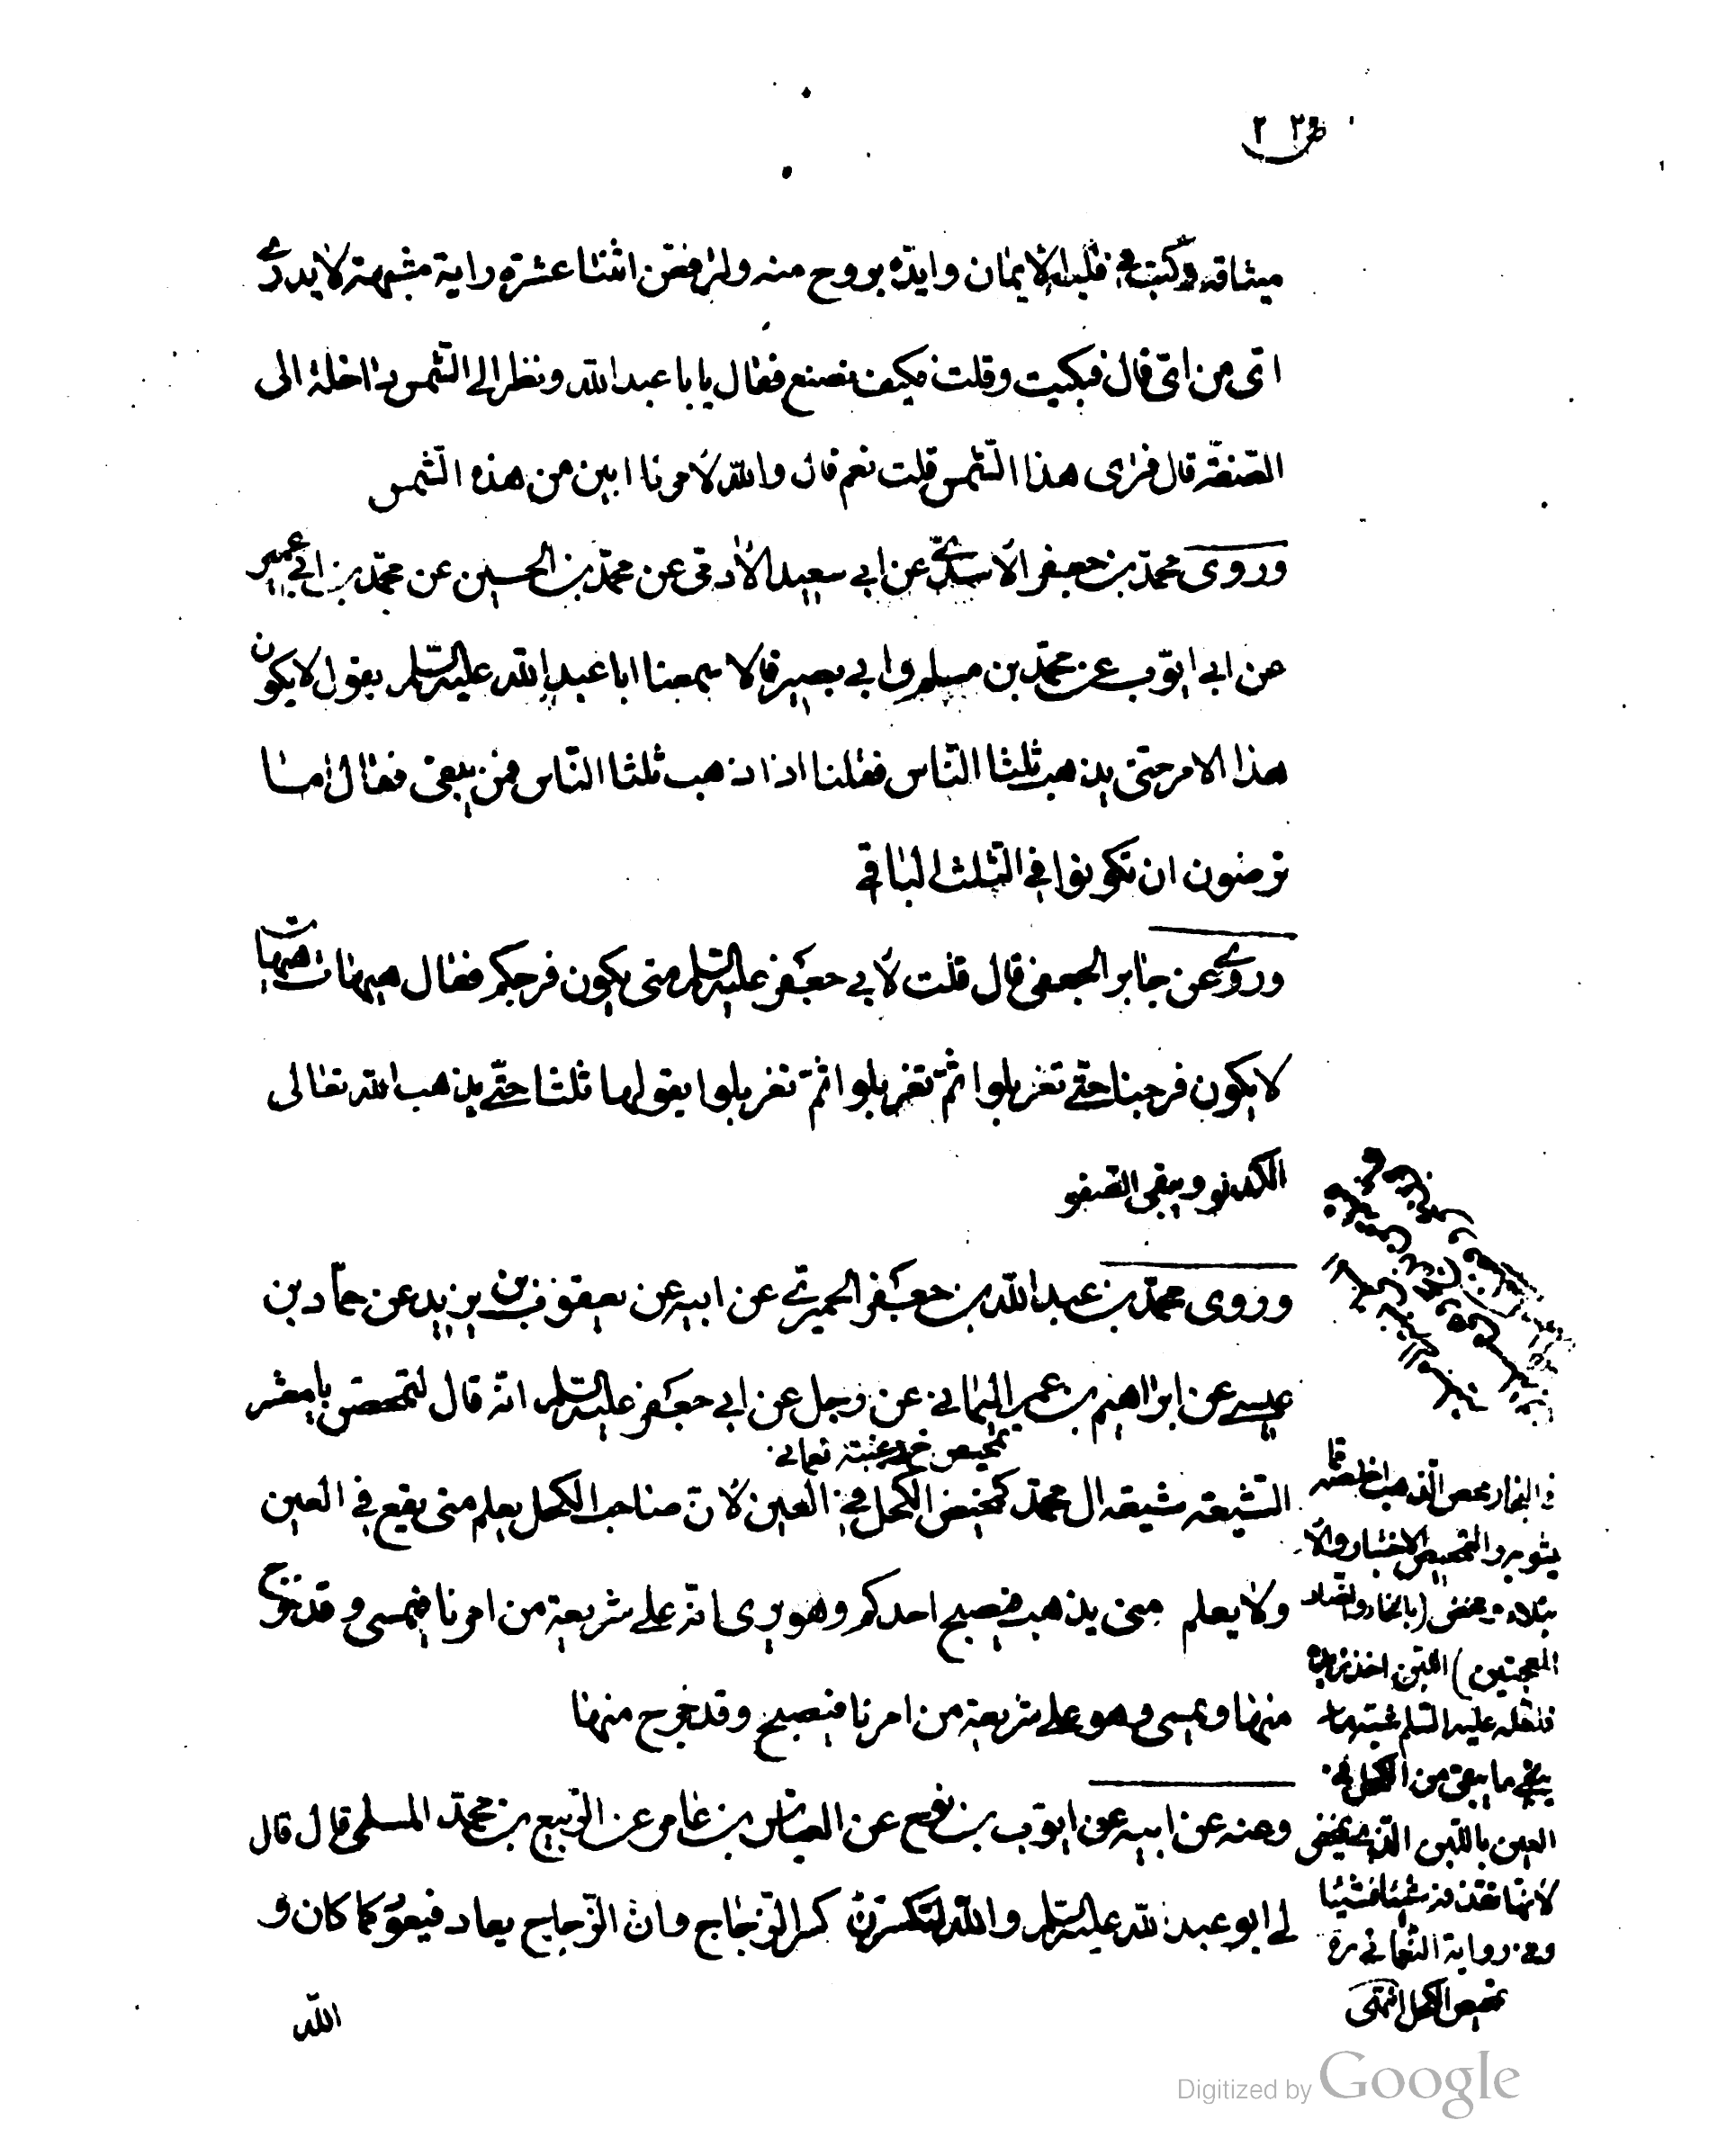 ٢٢٣
ميثاقه وكتب في قلبه الإيمان وايّده بروح منه ولترفعن اثنتا عشرة راية مشبهة لا يدرى
اىّ من اىّ قال فبكيت وقلت فكيف نصنع فقال يا با عبد الله ونظر الى الشّمس داخلة الى
الصّفّة قال فترى هذا الشّمس قلت نعم قال والله لأمرنا ابين من هذه الشّمس
وروى محمّد بن جعفر الأسدىّ عن ابي سعيد الأدمى عن محمّد بن الحسين عن محمّد بن ابي عمير
عن ابي ايّوب عن محمّد بن مسلم وابي بصير قالا سمعنا ابا عبد الله عليه السّلم يقول لا يكون
هذا الامر حتى يذهب ثلثا النّاس فقلنا اذا ذهب ثلثا النّاس فمن يبقى فقال اما
ترضون ان تكونوا في الثّلث الباقي
وروى عن جابر الجعفى قال قلت لأبي جعفر عليه السّلم متى يكون فرجكم فقال هيهات هيهات
لا يكون فرجنا حتّى تغربلوا ثمّ تغربلوا ثمّ تغربلوا يقولها ثلثا حتّى يذهب الله تعالى
الكدر ويبقى الصفو
وروى محمّد بن عبد الله بن جعفر الحميرى عن ابيه عن يعقوب بن يزيد عن حمّاد بن
عيسى عن ابراهيم بن عمر اليماني عن رجل عن ابي جعفر عليه السّلم انّه قال لتمحصن يا معشر
تمحيص خ غيبة نعماني
الشّيعة شيعة ال محمّد كمخيض الكحل في العين لأنّ صاحب الكحل يعلم متى يقع في العين
ولا يعلم متى يذهب فيصبح احدكم وهو يرى انّه على شريعة من امرنا فيمسى وقد خرج
منها ويمسى وهو على شريعة من امرنا فيصبح وقد خرج منها
وعنه عن ابيه عن ايّوب بن نوح عن العباس بن عامر عن الرّبيع بن محمّد المسلمى قال قال
لي ابو عبد الله عليه السّلم والله لتكسرنّ كسر الزّجاج وان الزّجاج يعاد فيعود كما كان و
الله
في البحار محص الذهب اخلصه مما
يشوبه والتمحيص الاختبار والا
بتلاء ومخض (بالخاء والضاد
المعجمتين) اللبن اخذ زبده
فلعله عليه السّلم شبه ما
يبقى من الكحل في
العين باللبن الذي يمخض
لانها تقذفه شيئا فشيئا
وفى رواية النّعماني ره
تمحيص الكحل انتهى